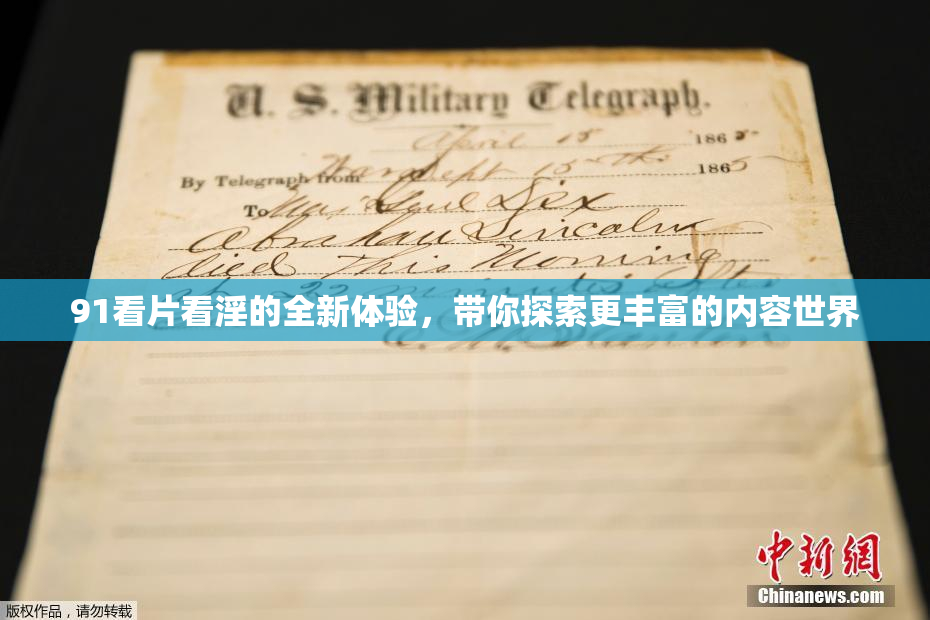 U. S. Military Telegraph.
April 15 1865
By Telegraph from War Dept 15th 1865
To Maj Genl Dix
Abraham Lincoln
died This Morning
at 22 minutes after
91看片看淫的全新体验，带你探索更丰富的内容世界
E. M. Stanton
中新网
Chinanews.com
版权作品，请勿转载